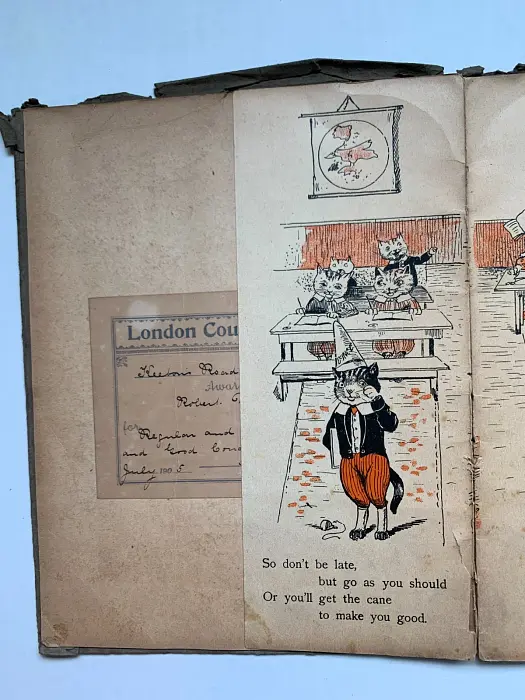 London Cou
Keetons Road
Awar
Robert
for
Regular and
and Good Cond
July 1905
So don't be late,
but go as you should
Or you'll get the cane
to make you good.